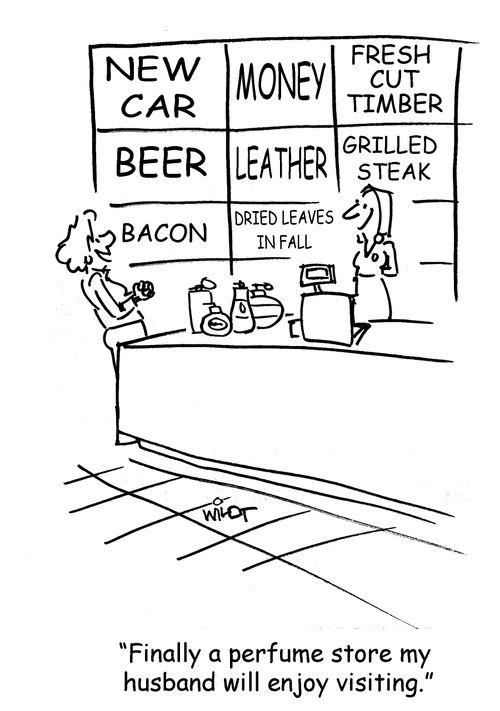 NEW
CAR
MONEY
FRESH
CUT
TIMBER
BEER
LEATHER
GRILLED
STEAK
BACON
DRIED LEAVES
IN FALL
WILDT
“Finally a perfume store my
husband will enjoy visiting.”